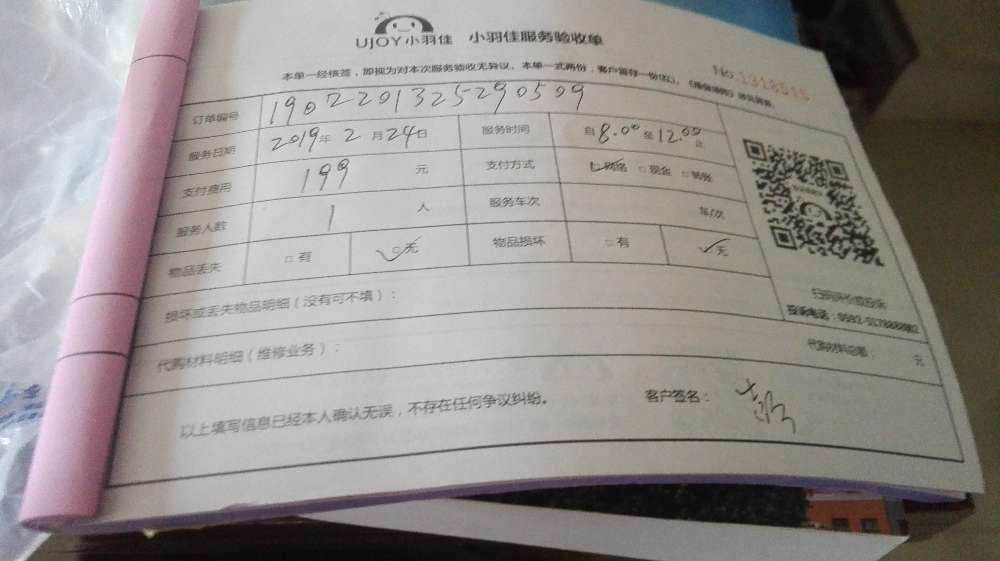 UJOY小羽佳 小羽佳服务验收单
No.1318515
本单一经核签，即视为对本次服务验收无异议。本单一式两份，客户留存一份(红)。
订单编号 190220132529050509
服务日期 2019年2月24日 服务时间 自8:00至12:00止
支付费用 199元 支付方式 □网络 □现金 □转账
服务人数 1人 服务车次 车/次
物品丢失 □有 □无 物品损坏 □有 □无
扫码评价或投诉
损坏或丢失物品明细（没有可不填）：
投诉电话：0592-
代购材料明细（维修业务）： 代购材料总额： 元
以上填写信息已经本人确认无误，不存在任何争议纠纷。 客户签名：